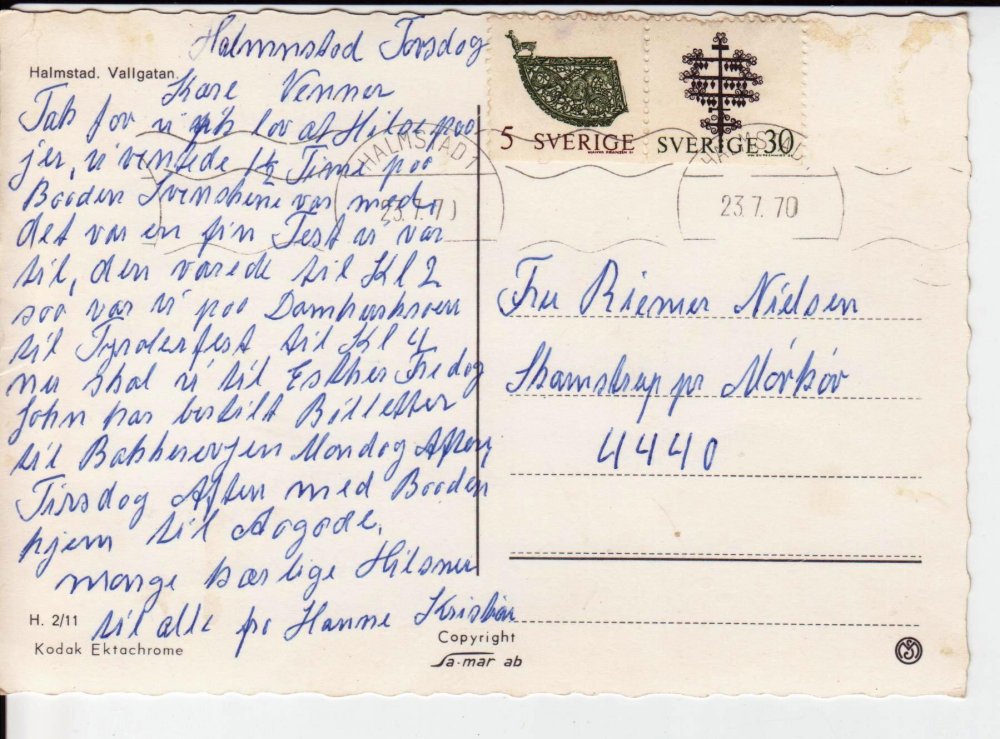 Halmmstad Torsdag
Halmstad. Vallgatan.
Kære Venner
Tak for vi fik lov at Hilse paa
jer, vi ventede 1½ Time paa
Baaden Svenskene var med,
det var en fin Fest vi var
til, den varede til Kl 2
saa var vi paa Damhuskroen
til Tyrolerfest til Kl 4
nu skal vi til Esther Fredag
John har bestilt Billetter
til Bakkerevyen Mandag Aften,
Tirsdag Aften med Baaden
hjem til Aagade.
mange kærlige Hilsner
til alle fra Hanne Kristian
H. 2/11
Kodak Ektachrome
Copyright
Sa-mar ab
5 SVERIGE
SVERIGE 30
HALMSTAD 1
23.7.70
HALMSTAD
23.7.70
Fru Riemer Nielsen
Skamstrup pr Mørkøv
4440